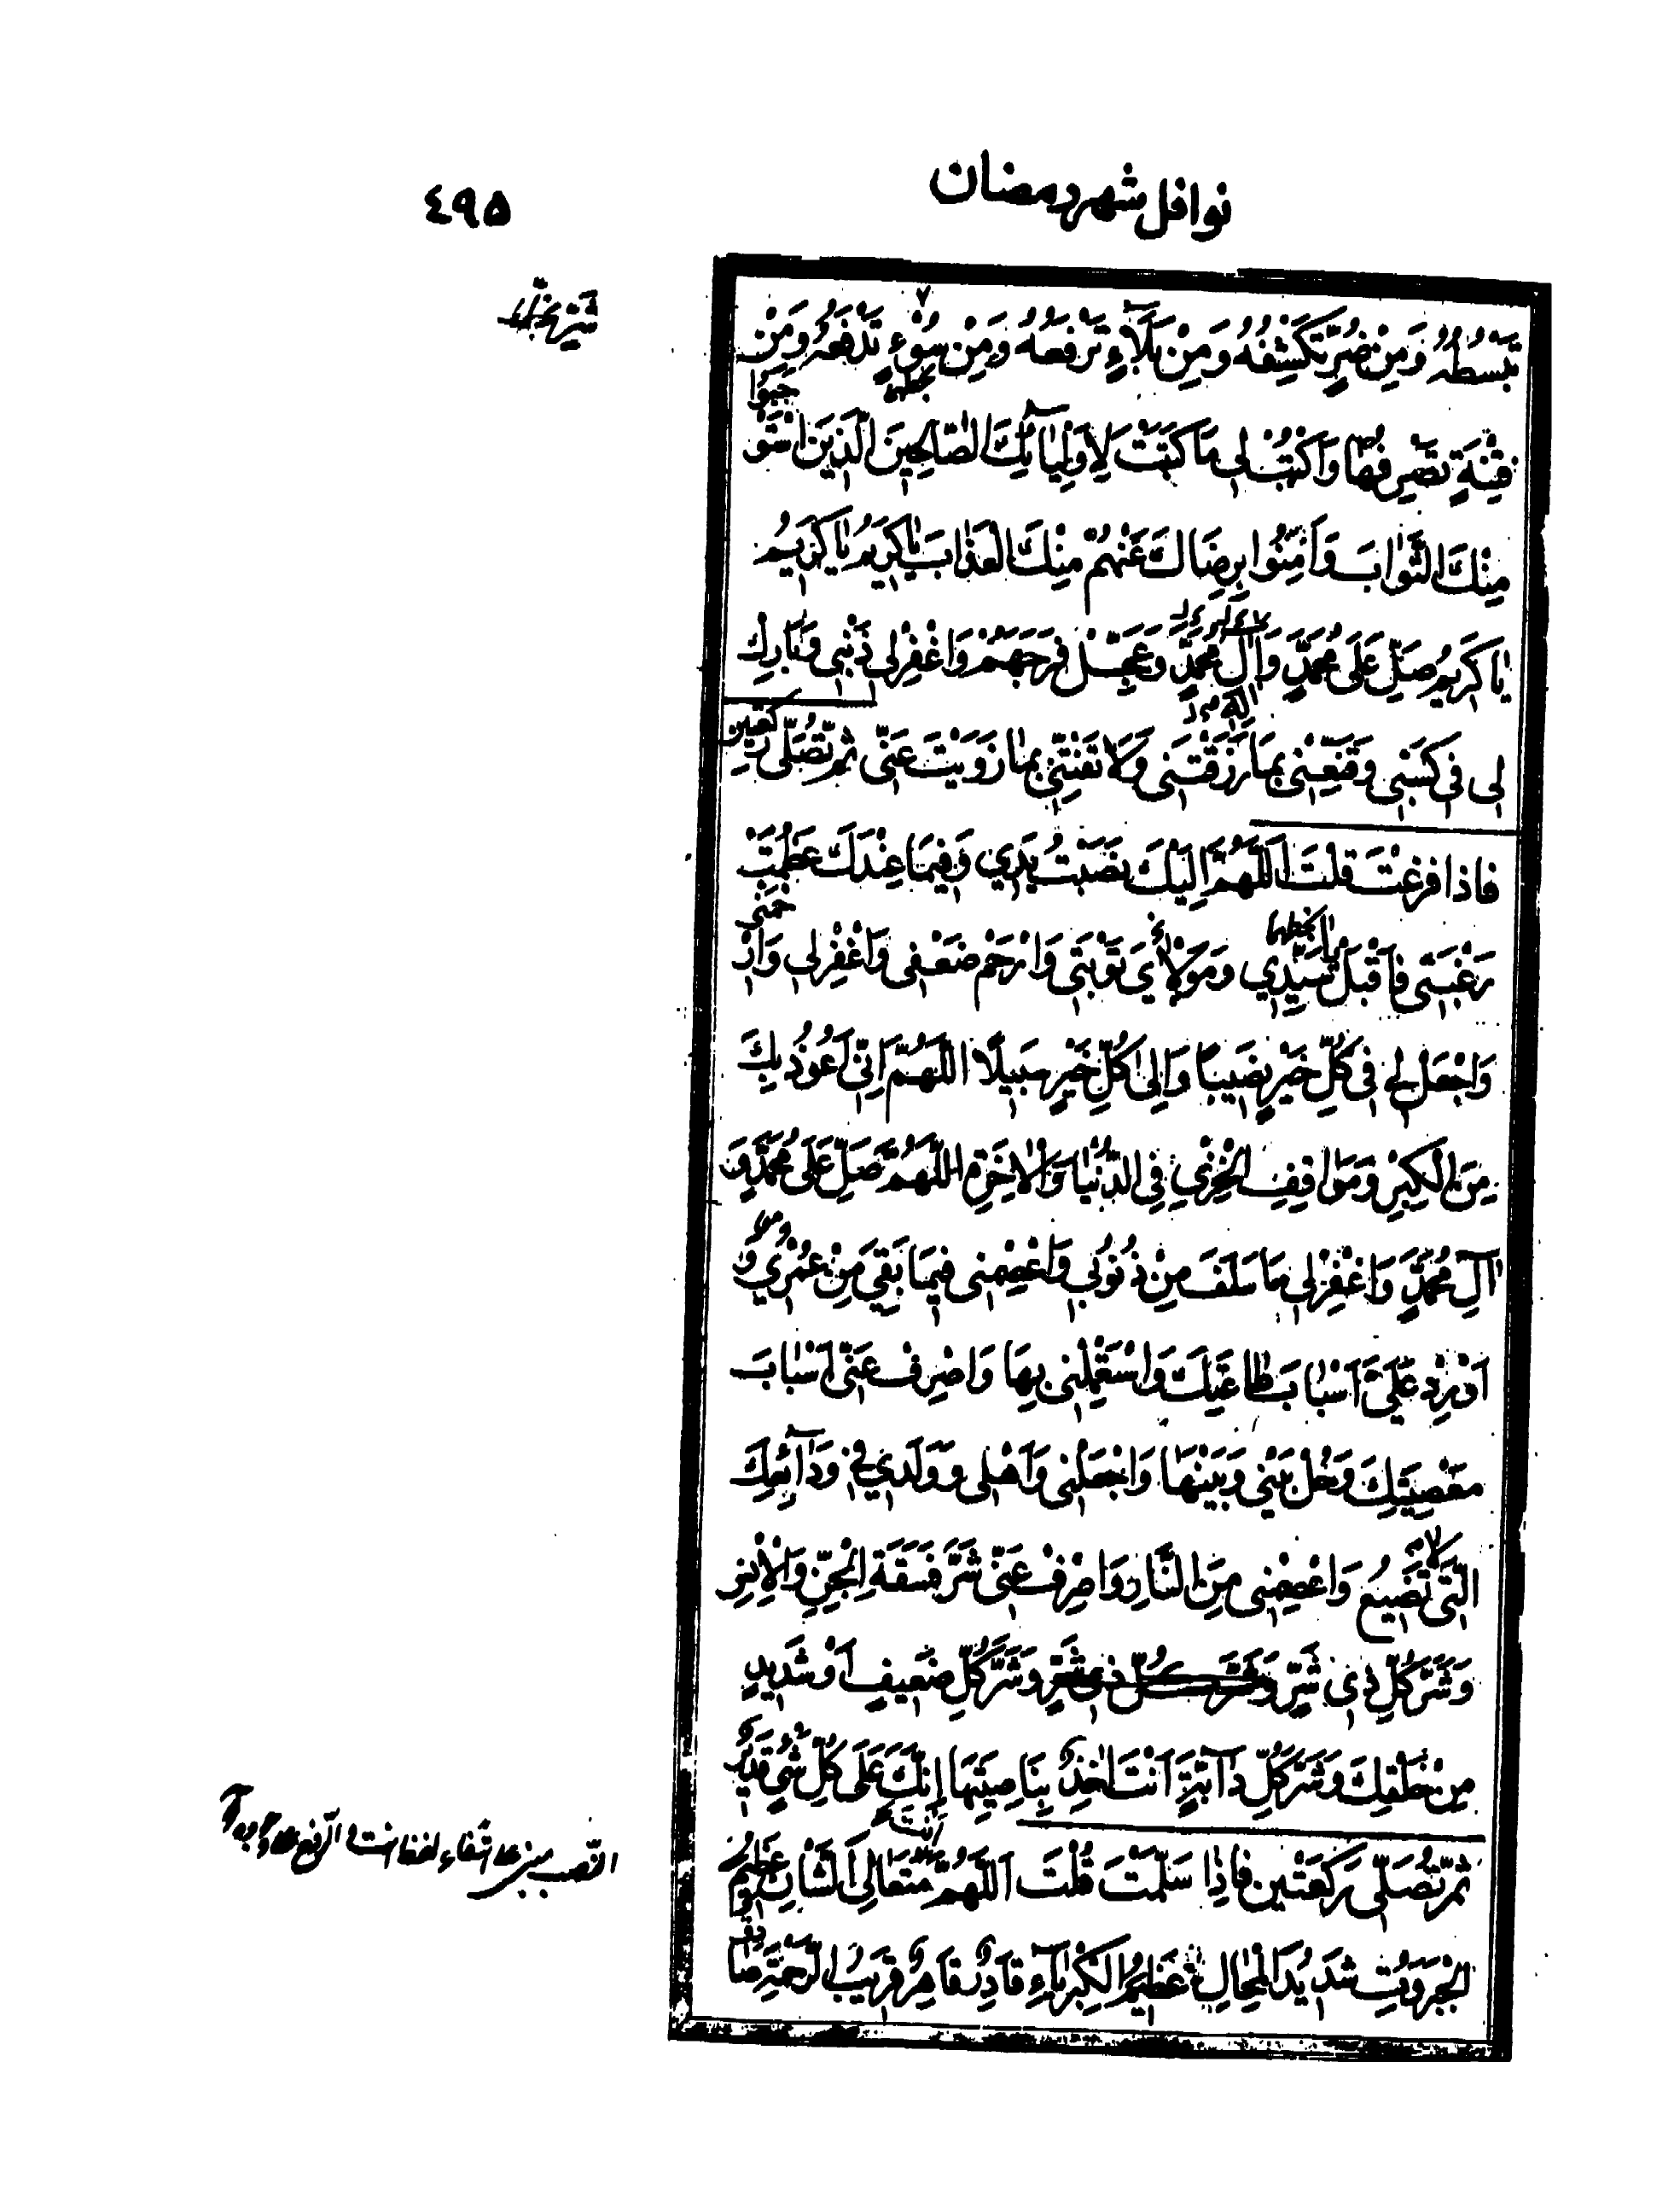 نوافل شهر رمضان
٤٩٥
تَبْسُطُهُ وَمِنْ ضُرٍّ تَكْشِفُهُ وَمِنْ بَلَآءٍ تَرْفَعُهُ وَمِنْ سُوْءٍ تَدْفَعُهُ وَمِنْ
فِتْنَةٍ تَصْرِفُهَا وَاكْتُبْ لِي مَا كَتَبْتَ لِأَوْلِيَآئِكَ الصَّالِحِينَ الَّذِينَ اسْتَوْ
جَبُوا
مِنْكَ الثَّوَابَ وَآمِنُوا بِرِضَاكَ عَنْهُمْ مِنْكَ الْعَذَابَ يَا كَرِيمُ يَا كَرِيمُ
يَا كَرِيمُ صَلِّ عَلَى مُحَمَّدٍ وَآلِ مُحَمَّدٍ وَعَجِّلْ فَرَجَهُمْ وَاغْفِرْ لِي ذَنْبِي وَبَارِكْ
لِي فِي كَسْبِي وَقَنِّعْنِي بِمَا رَزَقْتَنِي وَلَا تَفْتِنِّي بِمَا زَوَيْتَ عَنِّي ثم تُصَلِّي ركعتين
فاذا فرغت قلت اَللّهُمَّ اِلَيْكَ نَصَبْتُ يَدِي وَفِيمَا عِنْدَكَ عَظُمَتْ
رَغْبَتِي فَاقْبَلْ يا سَيِّدِي وَمَوْلَايَ تَوْبَتِي وَارْحَمْ ضَعْفِي وَاغْفِرْ لِي وَارْ
حَمْنِي
وَاجْعَلْ لِي فِي كُلِّ خَيْرٍ نَصِيبًا وَاِلَى كُلِّ خَيْرٍ سَبِيلًا اللّهُمَّ اِنِّي اَعُوذُ بِكَ
مِنَ الْكِبْرِ وَمَوَاقِفِ الْخِزْيِ فِي الدُّنْيَا وَالْاخِرَةِ اللّهُمَّ صَلِّ عَلَى مُحَمَّدٍ وَ
آلِ مُحَمَّدٍ وَاغْفِرْ لِي مَا سَلَفَ مِنْ ذُنُوبِي وَاعْصِمْنِي فِيمَا بَقِيَ مِنْ عُمْرِي وَ
اَوْرِدْ عَلَيَّ اَسْبَابَ طَاعَتِكَ وَاسْتَعْمِلْنِي بِهَا وَاصْرِفْ عَنِّي اَسْبَابَ
مَعْصِيَتِكَ وَحُلْ بَيْنِي وَبَيْنَهَا وَاجْعَلْنِي وَاَهْلِي وَوَلَدِي فِي وَدَآئِعِكَ
الَّتِي لا تَضِيعُ وَاعْصِمْنِي مِنَ النَّارِ وَاصْرِفْ عَنِّي شَرَّ فَسَقَةِ الْجِنِّ وَالْاِنْسِ
وَشَرَّ كُلِّ ذِي شَرٍّ وَشَرَّ كُلِّ ضَعِيفٍ اَوْ شَدِيدٍ
مِنْ خَلْقِكَ وَشَرَّ كُلِّ دَآبَّةٍ اَنْتَ اخِذٌ بِنَاصِيَتِهَا اِنَّكَ عَلَى كُلِّ شَيْءٍ قَدِيرٌ
ثم تُصَلِّي رَكْعَتَيْنِ فَاِذَا سَلَّمْتَ قُلْتَ اَللّهُمَّ اَنْتَ مُتَعَالِي الشَّأْنِ عَظِيمُ
الْجَبَرُوتِ شَدِيدُ الْمِحَالِ عَظِيمُ الْكِبْرِيَآءِ قَادِرٌ قَاهِرٌ قَرِيبُ الرَّحْمَةِ صَا
دِقُ